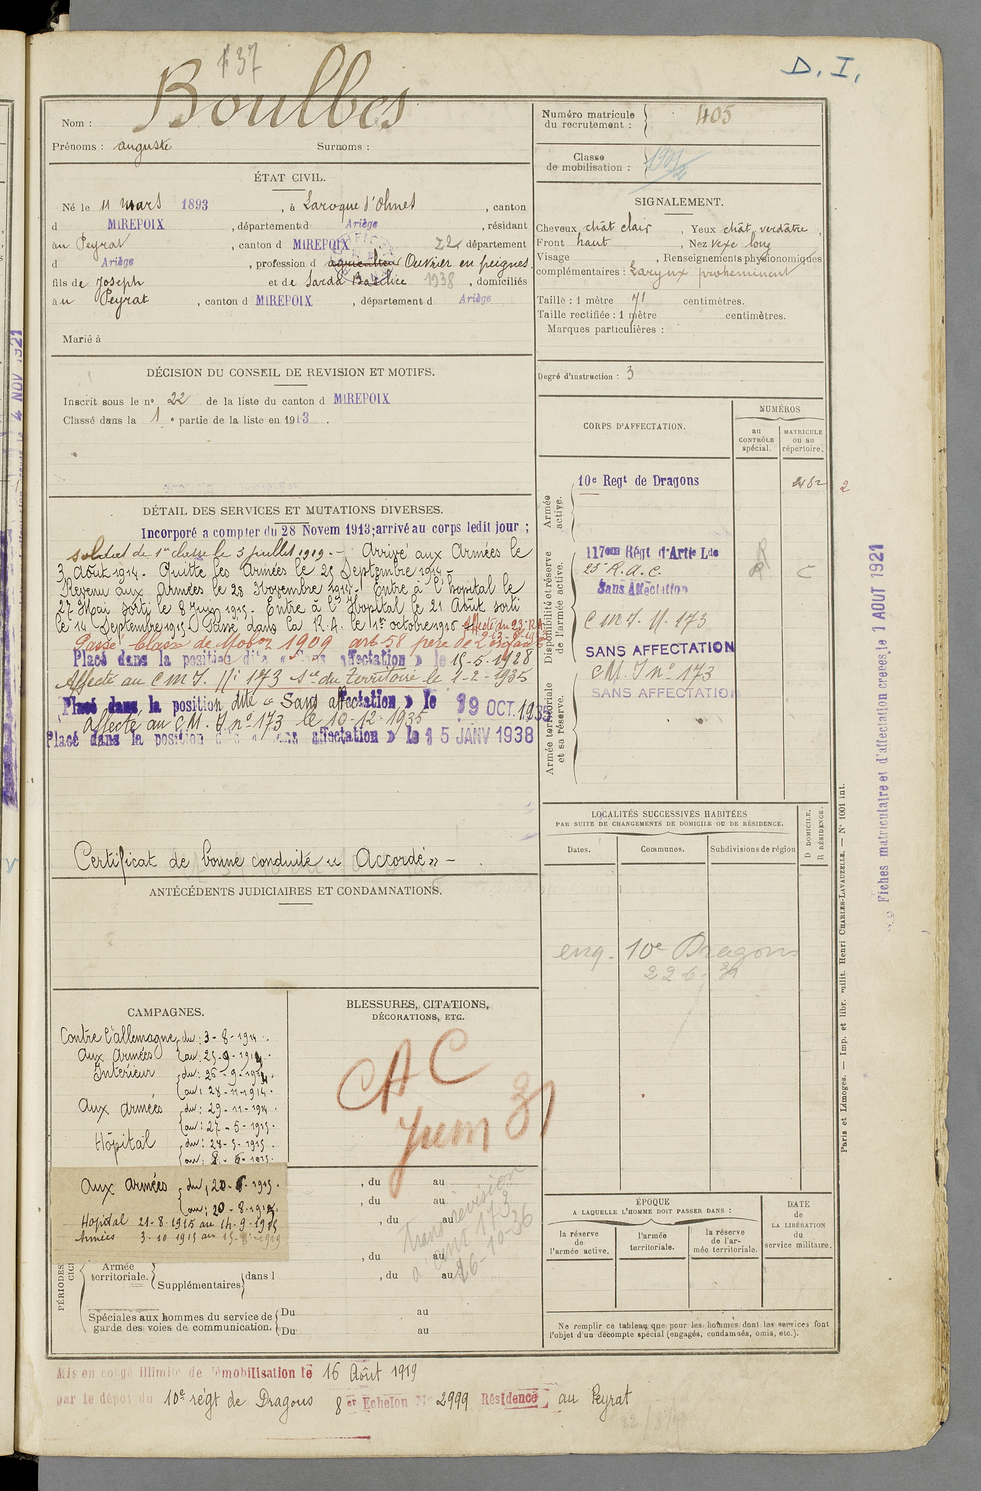 137
D. I.
Nom : Boulbes
Prénoms : auguste Surnoms :
Numéro matricule du recrutement : 405
Classe de mobilisation :
ÉTAT CIVIL.
Né le 11 mars 1893, à Laroque d'Olmes, canton
d MIREPOIX, département d Ariège, résidant
au Peyrat, canton d MIREPOIX département
d Ariège, profession d agriculteur Ouvrier en peignes,
fils de Joseph et de Sarda 1938, domiciliés
à au Peyrat, canton d MIREPOIX, département d Ariège
Marié à
SIGNALEMENT.
Cheveux chât clair, Yeux chât. verdâtre,
Front haut, Nez vexe long
Visage , Renseignements physionomiques
complémentaires : Larynx proheminent
Taille : 1 mètre 71 centimètres.
Taille rectifiée : 1 mètre centimètres.
Marques particulières :
Degré d'instruction : 3
DÉCISION DU CONSEIL DE REVISION ET MOTIFS.
Inscrit sous le n° 22 de la liste du canton d MIREPOIX
Classé dans la 1e partie de la liste en 1913.
CORPS D'AFFECTATION.
NUMÉROS
au CONTRÔLE spécial.
MATRICULE ou au répertoire.
Armée active.
10e Regt de Dragons
2
Disponibilité et réserve de l'armée active.
117ème Régt d'Artie Lde
R
25e R.A.C. R C
Sans Affectation
C M I. N. 173
SANS AFFECTATION
Armée territoriale et sa réserve.
C M. I n° 173
SANS AFFECTATION
DÉTAIL DES SERVICES ET MUTATIONS DIVERSES.
Incorporé a compter du 28 Novem 1913; arrivé au corps ledit jour ;
soldat de 1re classe le 3 juillet 1919. - Arrivé aux Armées le
3 Août 1914. Quitte les Armées le 25 Septembre 1914.
Revenu aux Armées le 28 Novembre 1914. Entre à l'hopital le
27 Mai sorti le 8 Juin 1915. Entre à l'Hopital le 21 Août sorti
le 14 Septembre 1915. Passé dans la R.A. le 1er octobre 1916
Passé classe de Mobon 1909 art 58 père de 2 enfants
Placé dans la position dite « Sans affectation » le 15-5-1928
Affecté au C M I. N° 173 Son du Territoire le 1-2-1935
Placé dans la position dite « Sans affectation » le 19 OCT. 1935
Affecté au C.M. I n° 173 le 10-12-1935
Placé dans la position dite « Sans affectation » le 15 JANV 1938
Certificat de bonne conduite « Accordé » -
ANTÉCÉDENTS JUDICIAIRES ET CONDAMNATIONS.
LOCALITÉS SUCCESSIVES HABITÉES
PAR SUITE DE CHANGEMENTS DE DOMICILE OU DE RÉSIDENCE.
Dates. Communes. Subdivisions de région
D DOMICILE. R RÉSIDENCE.
enq. 10e Dragons
CAMPAGNES.
Contre l'allemagne, du : 3-8-1914.
Aux Armées au : 25-9-1914.
Intérieur du : 26-9-1914.
au : 28-11-1914.
Aux armées du : 29-11-1914.
au : 27-5-1915.
Hôpital du : 28-5-1915.
au : 8-6-1915.
Aux armées du : 20-6-1915.
au : 20-8-1915.
Hopital 21-8-1915 au 14-9-1915
Armées 3-10-1915 au 15-8-1919
BLESSURES, CITATIONS, DÉCORATIONS, ETC.
CAC
Juin 31
, du au
, du au
, du au
, du au
, du au
26-10-36
PÉRIODES
Armée territoriale. Supplémentaires dans l
Spéciales aux hommes du service de garde des voies de communication. Du au
Du au
ÉPOQUE
A LAQUELLE L'HOMME DOIT PASSER DANS :
la réserve de l'armée active.
l'armée territoriale.
la réserve de l'armée territoriale.
DATE de LA LIBÉRATION du service militaire.
Ne remplir ce tableau que pour les hommes dont les services font
l'objet d'un décompte spécial (engagés, condamnés, omis, etc.).
Mis en congé illimité de démobilisation le 16 Août 1919
par le dépôt du 10e régt de Dragons 8er Echelon N° 2999 Résidence au Peyrat
Paris et Limoges. — Imp. et libr. milit. Henri CHARLES-LAVAUZELLE. — N° 1001 int.
Fiches matriculaire et d'affectation créées le 1 AOUT 1921
4 NOV 1921